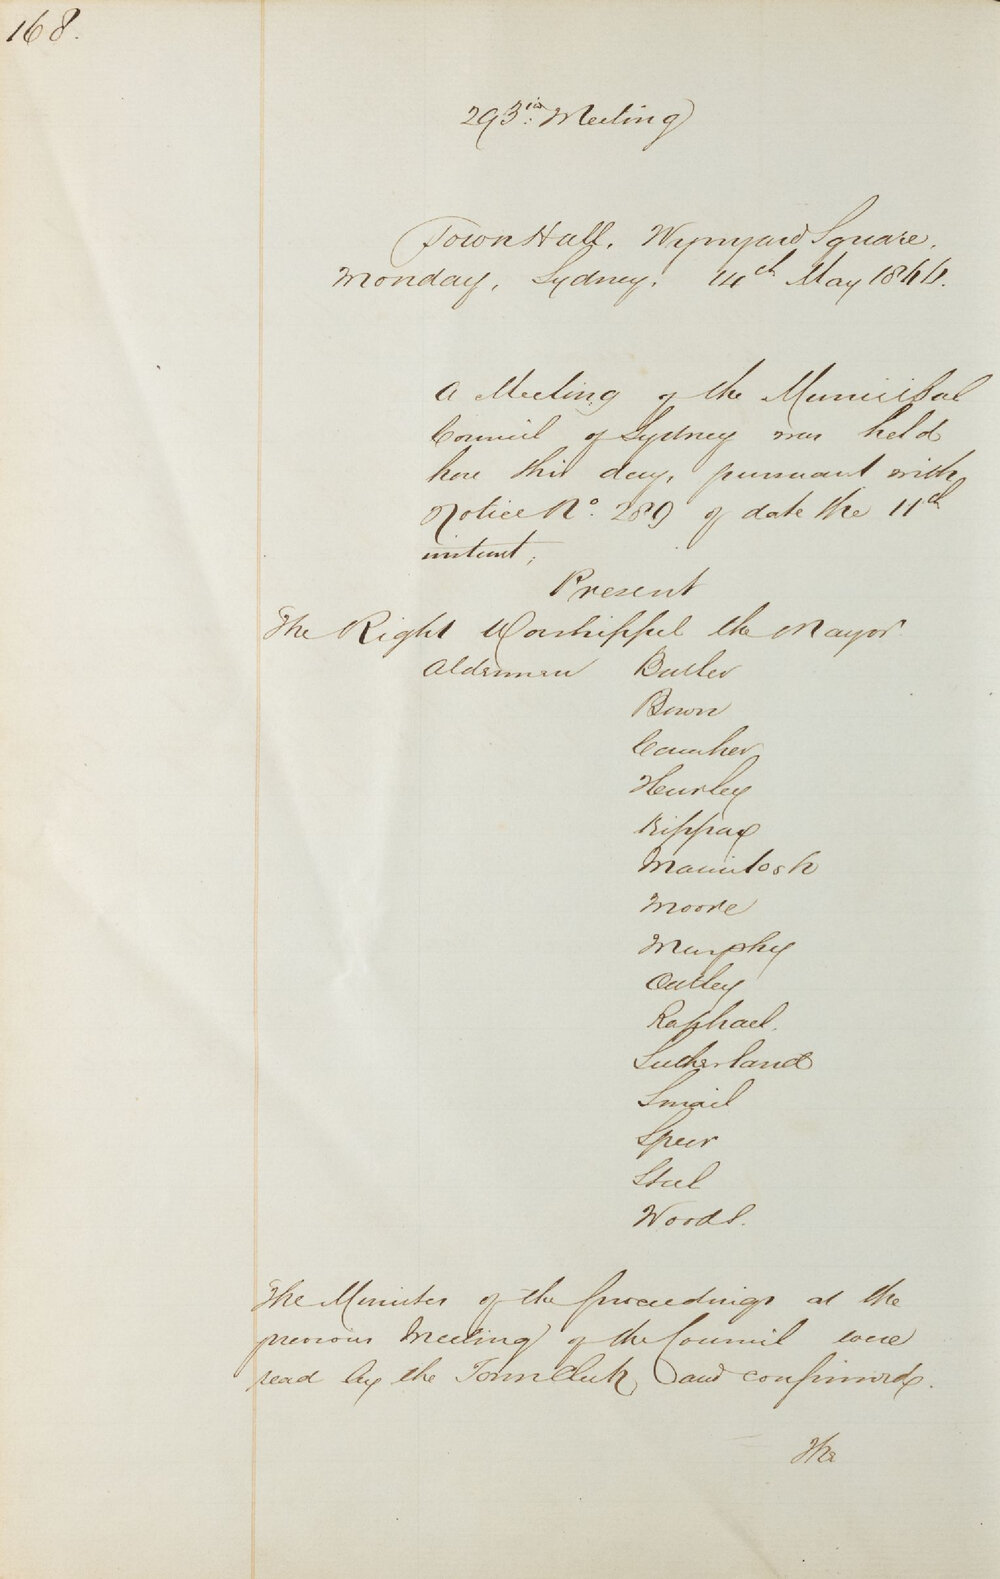 168.
293rd Meeting
Town Hall, Wynyard Square,
Monday, Sydney, 14th May 1866.
A Meeting of the Municipal
Council of Sydney was held
here this day, pursuant with
Notice No. 289 of date the 11th
instant;
Present
The Right Worshipful the Mayor
Aldermen Butler
Bown
Caraher
Hurley
Kippax
Macintosh
Moore
Murphy
Oatley
Raphael.
Sutherland
Smail
Speer
Steel
Woods.
The Minutes of the proceedings at the
previous Meeting of the Council were
read by the Town Clerk, and confirmed.
The